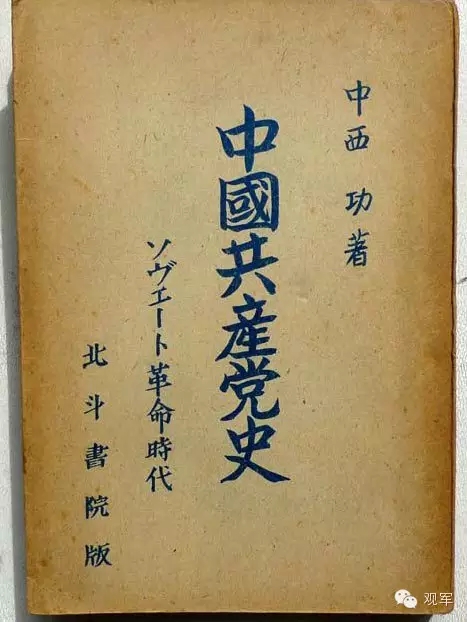 中西 功著
中國共産党史
ソヴエート革命時代
北斗書院版
观军